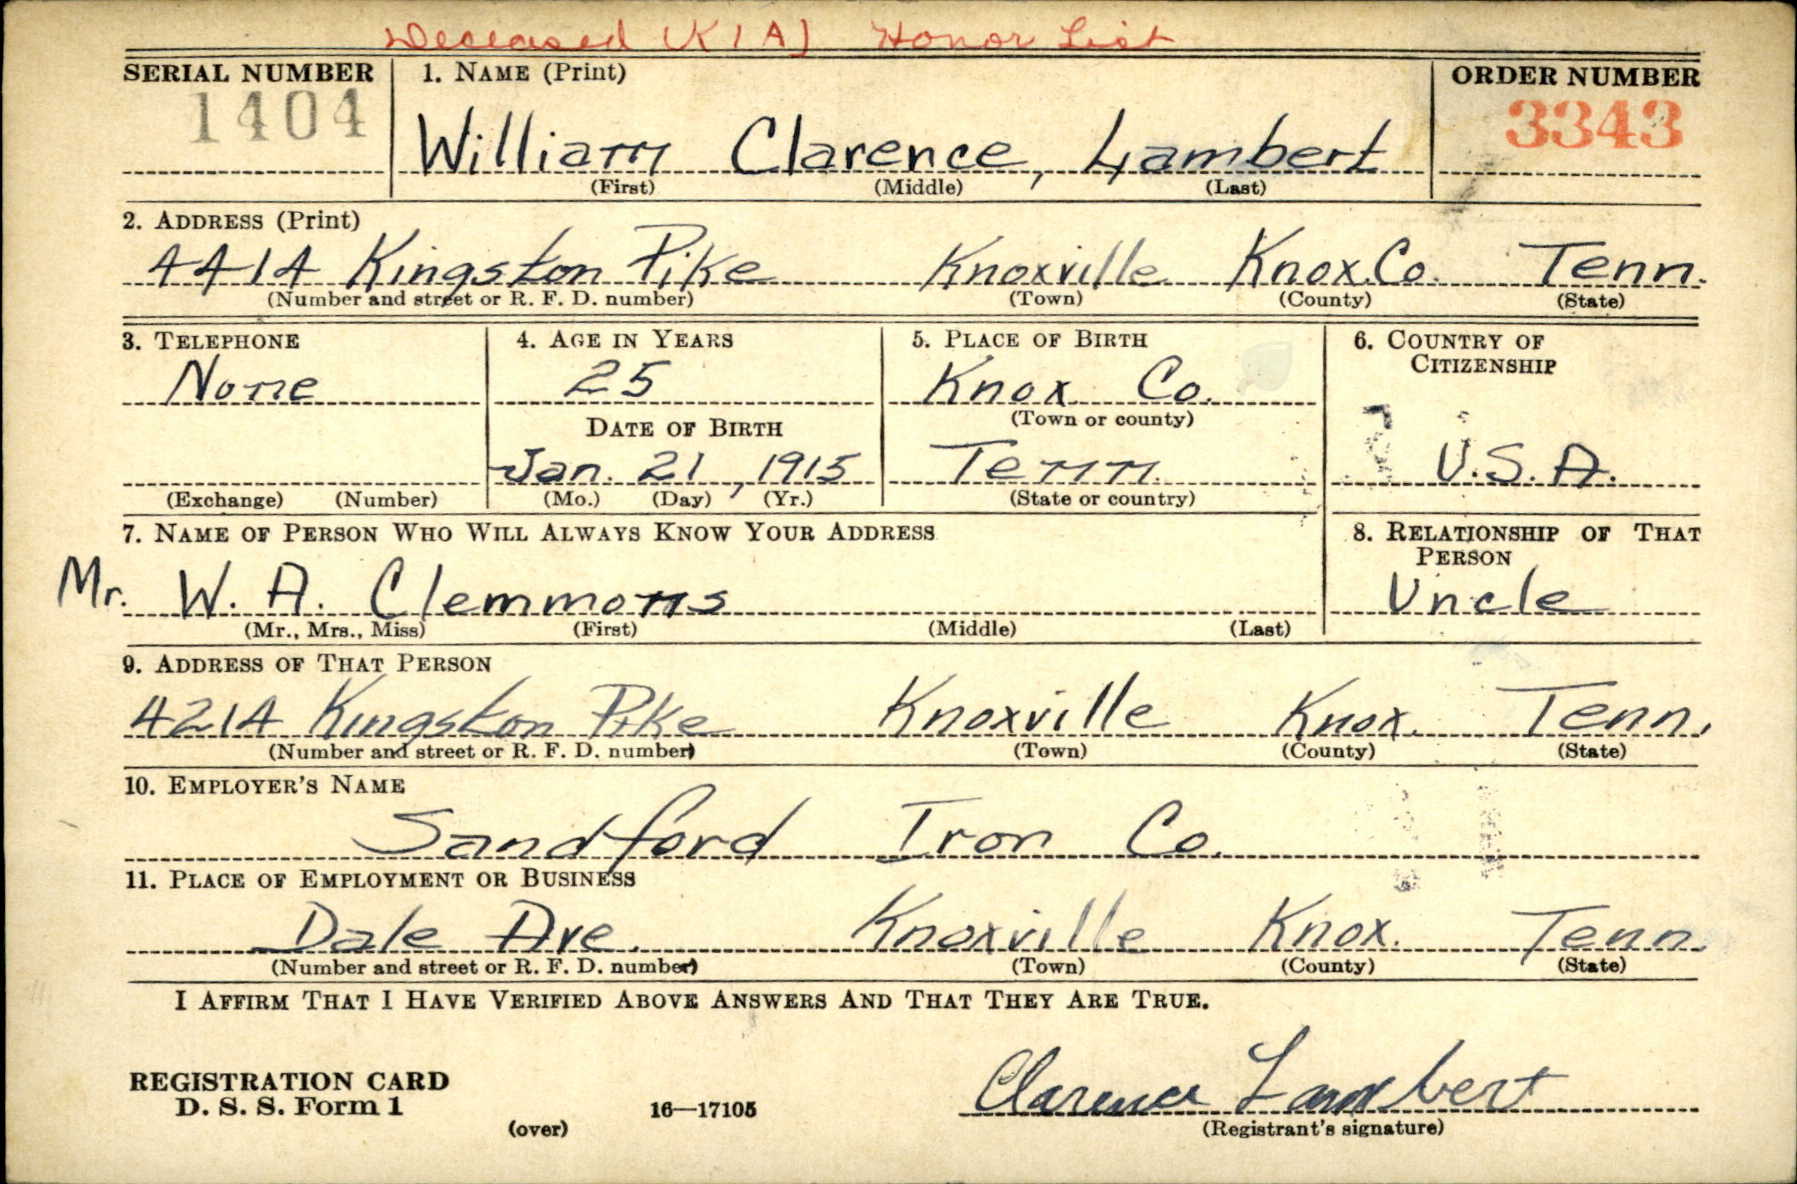 Deceased (KIA) Honor List
SERIAL NUMBER 1. NAME (Print) ORDER NUMBER
1404 William Clarence, Lambert 3343
(First) (Middle) (Last)
2. ADDRESS (Print)
4414 Kingston Pike Knoxville Knox.Co. Tenn.
(Number and street or R. F. D. number) (Town) (County) (State)
3. TELEPHONE 4. AGE IN YEARS 5. PLACE OF BIRTH 6. COUNTRY OF CITIZENSHIP
None 25 Knox Co.
DATE OF BIRTH (Town or county)
Jan. 21, 1915 Tenn. U.S.A.
(Exchange) (Number) (Mo.) (Day) (Yr.) (State or country)
7. NAME OF PERSON WHO WILL ALWAYS KNOW YOUR ADDRESS 8. RELATIONSHIP OF THAT PERSON
Mr. W. A. Clemmons Uncle
(Mr., Mrs., Miss) (First) (Middle) (Last)
9. ADDRESS OF THAT PERSON
4214 Kingston Pike Knoxville Knox. Tenn.
(Number and street or R. F. D. number) (Town) (County) (State)
10. EMPLOYER'S NAME
Sandford Iron Co.
11. PLACE OF EMPLOYMENT OR BUSINESS
Dale Ave. Knoxville Knox. Tenn.
(Number and street or R. F. D. number) (Town) (County) (State)
I AFFIRM THAT I HAVE VERIFIED ABOVE ANSWERS AND THAT THEY ARE TRUE.
REGISTRATION CARD
D. S. S. Form 1 16—17105 Clarence Lambert
(over) (Registrant's signature)